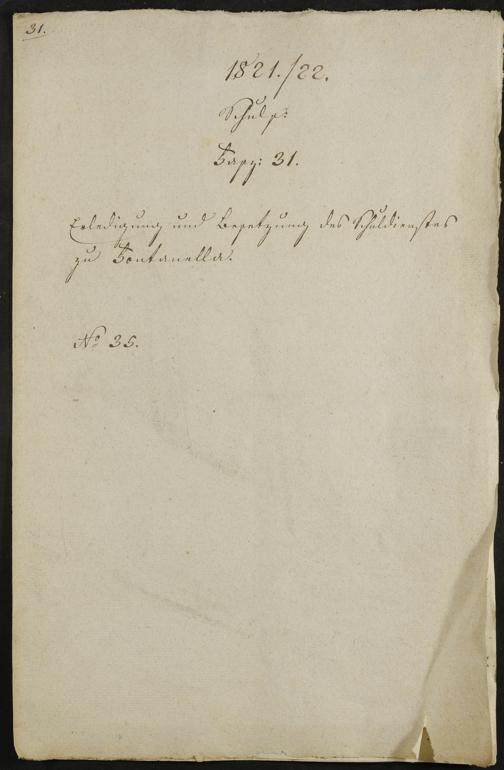 31.
1821./22.
Schule:
Fasz: 31.
Erledigung und Besetzung des Schuldienstes
zu Fontanella.
No 35.